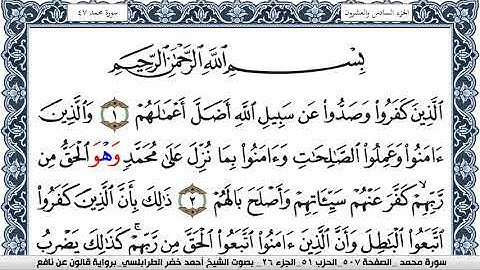 الجزء السادس والعشرون
سورة محمد ٤٧
بِسْمِ اللَّهِ الرَّحْمَٰنِ الرَّحِيمِ
الَّذِينَ كَفَرُوا وَصَدُّوا عَن سَبِيلِ اللَّهِ أَضَلَّ أَعْمَٰلَهُمْ ١ وَالَّذِينَ
ءَامَنُوا وَعَمِلُوا الصَّٰلِحَٰتِ وَءَامَنُوا بِمَا نُزِّلَ عَلَىٰ مُحَمَّدٍ وَهْوَ الْحَقُّ مِن
رَّبِّهِمْ كَفَّرَ عَنْهُمْ سَيِّـَٔاتِهِمْ وَأَصْلَحَ بَالَهُمْ ٢ ذَٰلِكَ بِأَنَّ الَّذِينَ كَفَرُوا
اتَّبَعُوا الْبَٰطِلَ وَأَنَّ الَّذِينَ ءَامَنُوا اتَّبَعُوا الْحَقَّ مِن رَّبِّهِمْ كَذَٰلِكَ يَضْرِبُ
سورة محمد _ الصفحة ٥٠٧_ الحزب ٥١_ الجزء ٢٦_ بصوت الشيخ أحمد خضر الطرابلسي_ برواية قالون عن نافع